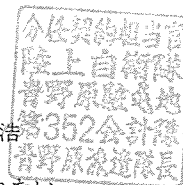 分任契約担当官
陸上自衛隊
青野原駐屯地
第352会計隊
青野原派遣隊長
浩